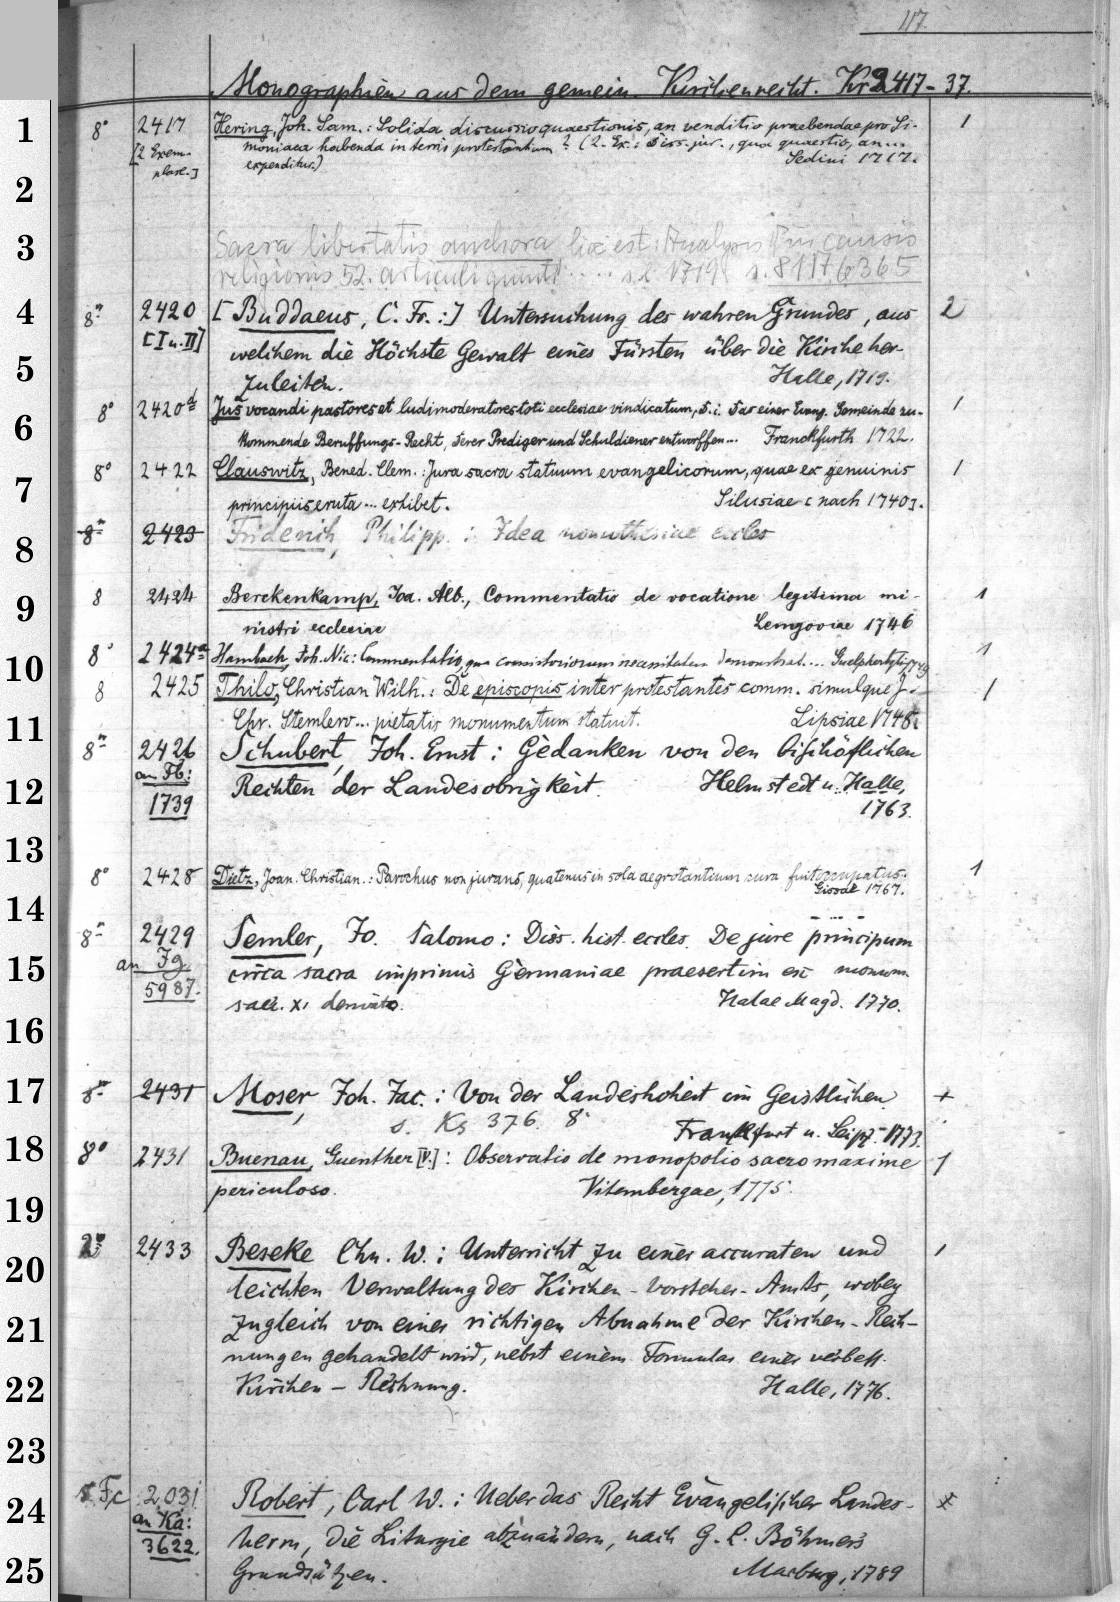 117.
Monographien aus dem gemein. Kirchenrecht. Kr 2417-37.
1 8° 2417 Hering, Joh. Sam.: Solida discussio quaestionis, an venditio praebendae pro Si- 1
[2 Exem- moniaca habenda in terris protestantium? (2. Ex.: Diss. jur., qua quaestio, an...
plare.] expenditur.) Sedini 1717.
2
3 Sacra libertatis anchora hoc est: Analysis
religionis 52. articuli quinti .... s.l. 1719 s. 8 II 6365
4 8° 2420 [Buddaeus, C. Fr.:] Untersuchung des wahren Grundes, aus 2
[I u. II] welchem die Höchste Gewalt eines Fürsten über die Kirche her-
5 zuleiten. Halle, 1719.
8° 2420d Jus vocandi pastores et ludimoderatores toti ecclesiae vindicatum, d.i. Das einer Evang. Gemeinde zu- 1
6 kommende Beruffungs-Recht, derer Prediger und Schuldiener entworffen... Franckfurth 1722.
8° 2422 Clauswitz, Bened. Clem.: Jura sacra statuum evangelicorum, quae ex genuinis 1
7 principiis eruta ... exhibet. Silusiae [nach 1740].
8 8° 2423 Friderich, Philipp.: Idea nomothesiae eccles
9 8 2424 Berckenkamp, Joa. Alb., Commentatio de vocatione legitima mi- 1
nistri ecclesiae Lemgoviae 1746
10 8° 2424a Hambach, Joh. Nic: Commentatio, qua consistoriorum demonstrat.... 1
8 2425 Thilo, Christian Wilh.: De episcopis inter protestantes comm. simulque J. 1
11 Chr. Stemlero... pietatis monumentum statuit. Lipsiae 1748.
8° 2426 Schubert, Joh. Ernst: Gedanken von den bischöflichen
an Fb:
12 1739 Rechten der Landesobrigkeit. Helmstedt u. Halle,
1763.
13
8° 2428 Dietz, Joan. Christian.: Parochus non jurans, quatenus in sola aegrotantium cura fuit occupatus. 1
14 Gissae 1767.
8° 2429 Semler, Jo. Salomo: Diss. hist. eccles. De jure principum
15 an Fg circa sacra imprimis Germaniae praesertim ex monum.
5987. saec. XI derivato. Halae Magd. 1770.
16
17 8° 2431 Moser, Joh. Jac.: Von der Landeshoheit im Geistlichen. +
s. Ks 376. 8° Frankfurt u. Leipz. 1773.
18 8° 2431 Buenau, Guenther [v.]: Observatio de monopolio sacro maxime 1
19 periculoso. Vitembergae, 1775.
2433 Beseke Chn. W.: Unterricht zu einer accuraten und 1
20 leichten Verwaltung des Kirchen-Vorsteher-Amts, wobey
21 zugleich von einer richtigen Abnahme der Kirchen-Rech-
nungen gehandelt wird, nebst einem Formular einer verbess.
22 Kirchen-Rechnung. Halle, 1776.
23
24 s. Fc 2,031 Robert, Carl W.: Ueber das Recht Evangelischer Landes- +
an Ka:
3622. herrn, die Liturgie abzuändern, nach G. L. Böhmers
25 Grundsätzen. Marburg, 1789